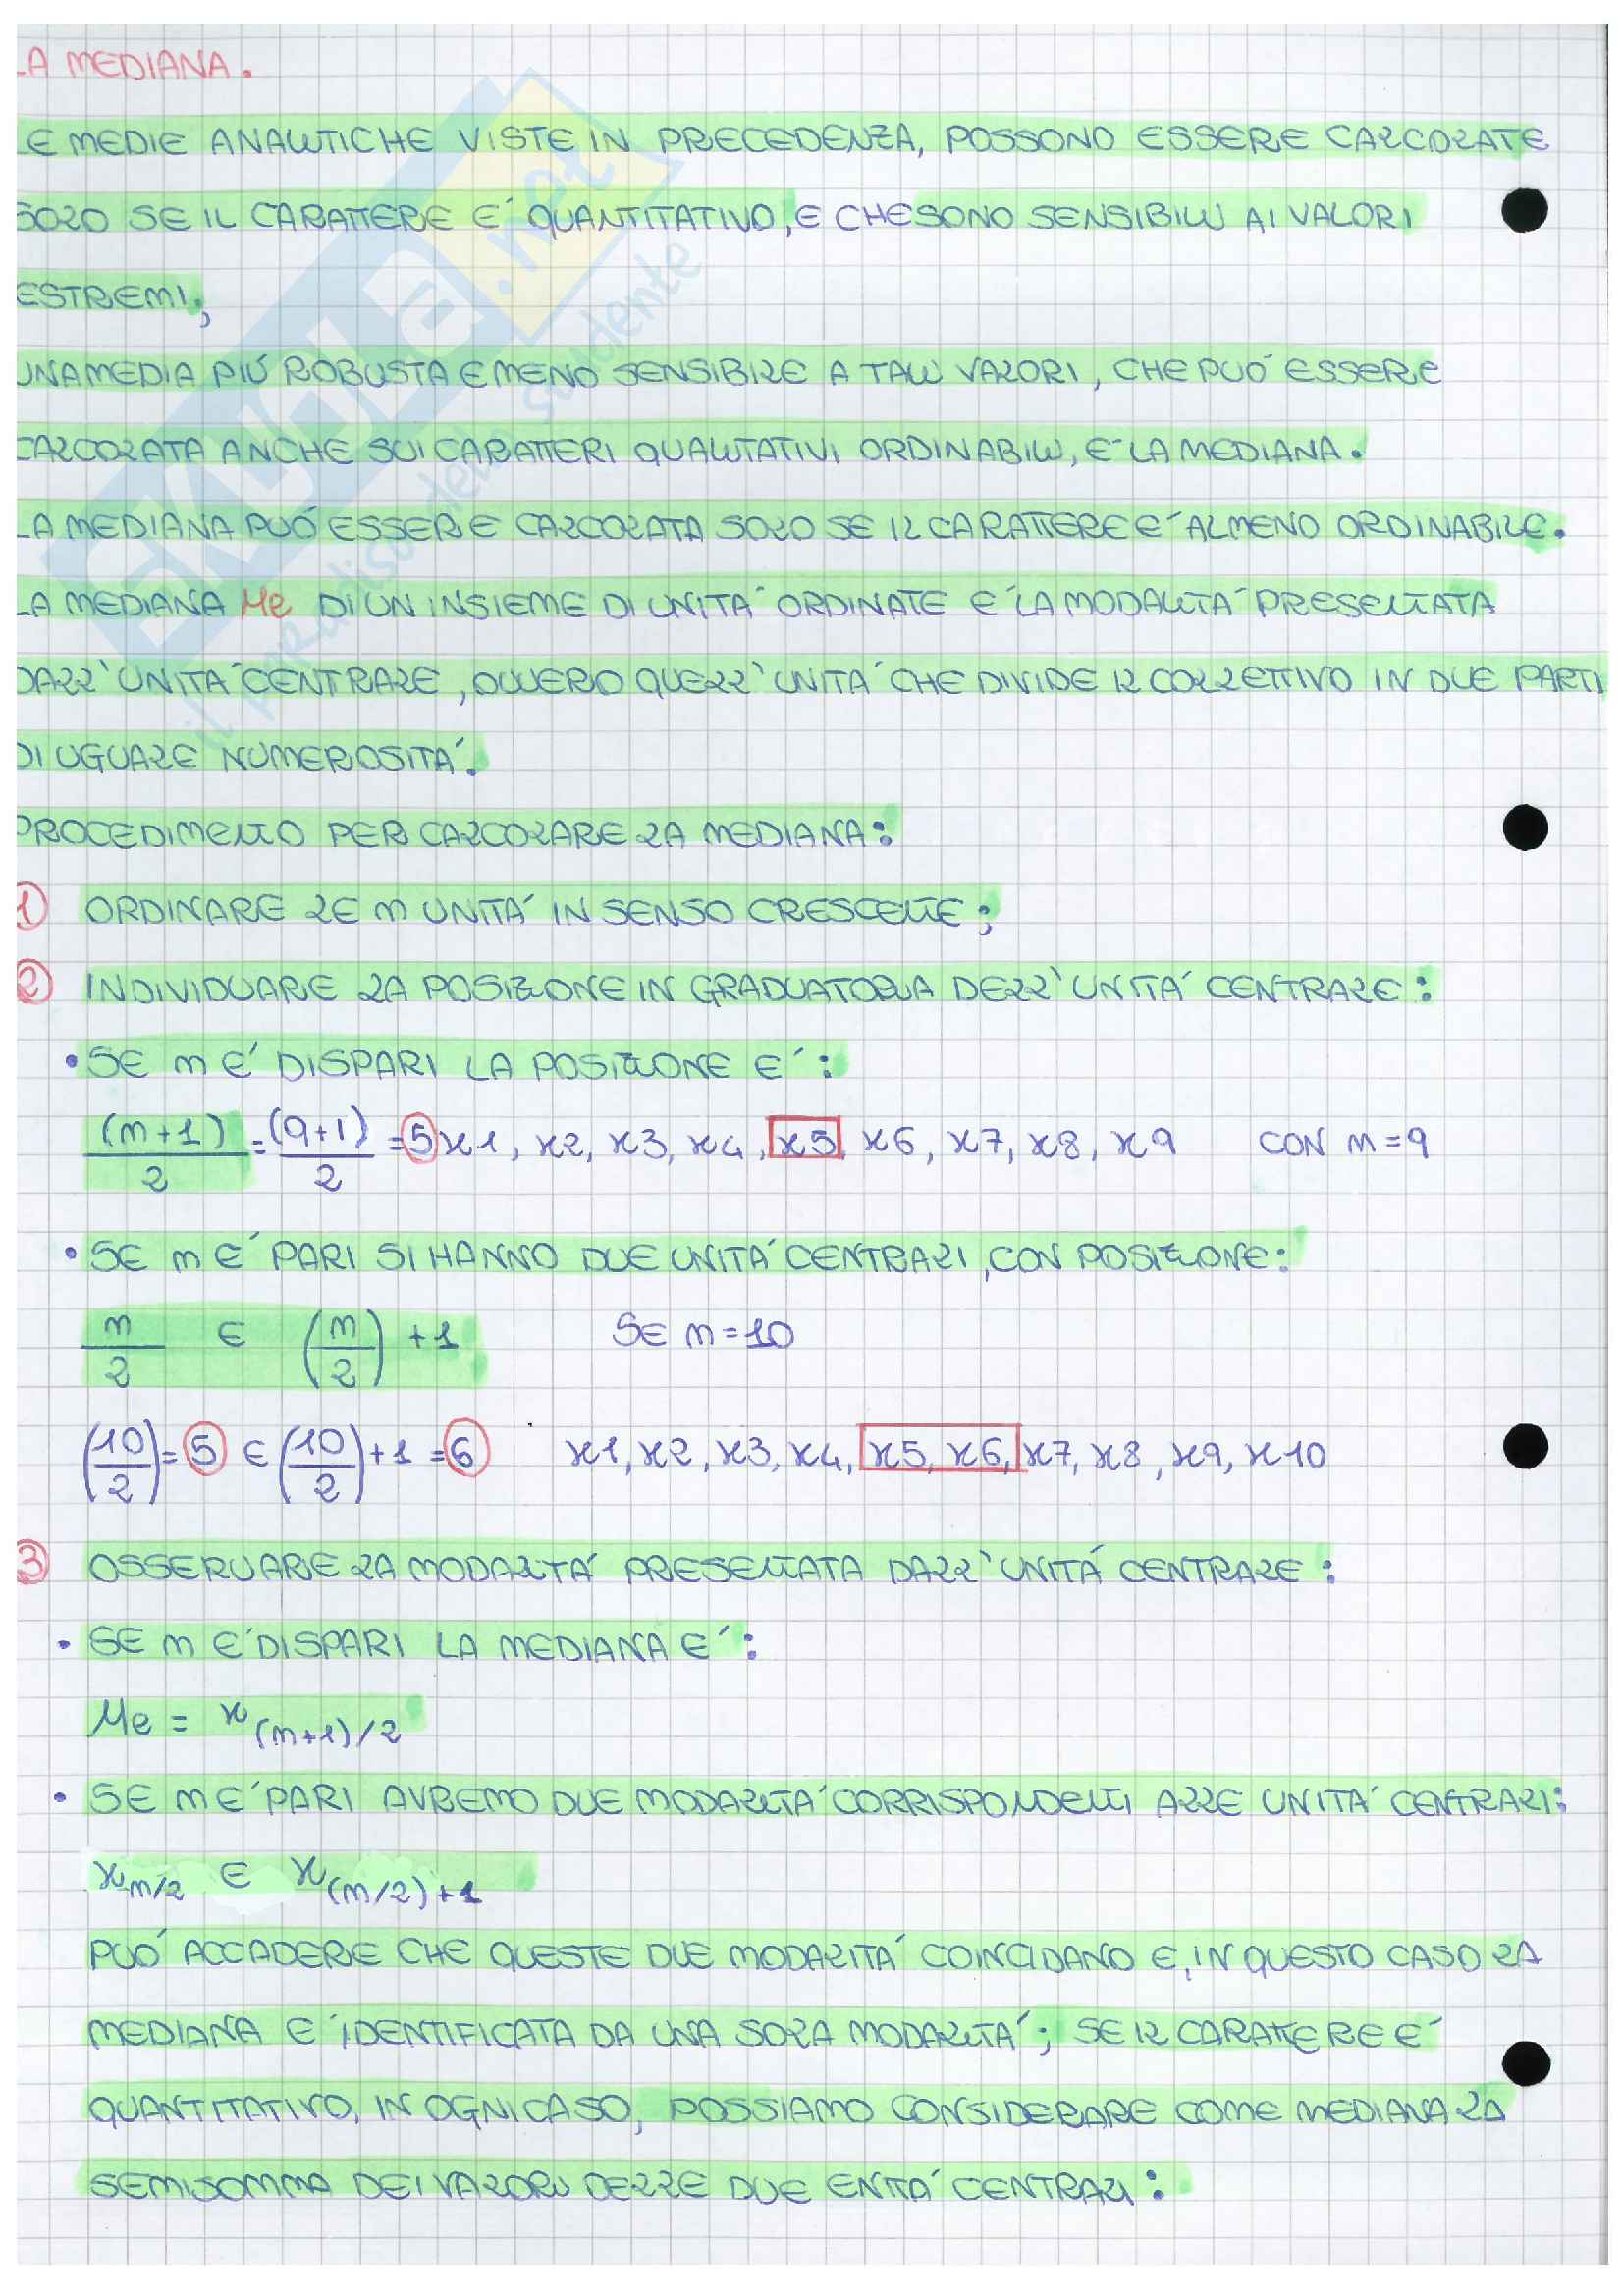 LA MEDIANA.
LE MEDIE ANALITICHE VISTE IN PRECEDENZA, POSSONO ESSERE CALCOLATE
SOLO SE IL CARATTERE E' QUANTITATIVO, E CHE SONO SENSIBILI AI VALORI
ESTREMI;
UNA MEDIA PIÚ ROBUSTA E MENO SENSIBILE A TALI VALORI, CHE PUÓ ESSERE
CALCOLATA ANCHE SUI CARATTERI QUALITATIVI ORDINABILI, E' LA MEDIANA.
LA MEDIANA PUÓ ESSERE CALCOLATA SOLO SE IL CARATTERE E' ALMENO ORDINABILE.
LA MEDIANA Me DI UN INSIEME DI UNITA' ORDINATE E' LA MODALITA' PRESENTATA
DALL'UNITA' CENTRALE, OVVERO QUELL'UNITA' CHE DIVIDE IL COLLETTIVO IN DUE PARTI
DI UGUALE NUMEROSITA'.
PROCEDIMENTO PER CALCOLARE LA MEDIANA:
1) ORDINARE LE n UNITA' IN SENSO CRESCENTE;
2) INDIVIDUARE LA POSIZIONE IN GRADUATORIA DELL'UNITA' CENTRALE:
• SE n E' DISPARI LA POSIZIONE E':
(n+1)/2 = (9+1)/2 = 5 x1, x2, x3, x4, x5, x6, x7, x8, x9 CON n=9
• SE n E' PARI SI HANNO DUE UNITA' CENTRALI, CON POSIZIONE:
n/2 E (n/2) +1 SE n=10
(10/2) = 5 E (10/2) +1 = 6 x1, x2, x3, x4, x5, x6, x7, x8, x9, x10
3) OSSERVARE LA MODALITÁ PRESENTATA DALL'UNITÁ CENTRALE:
• SE n E' DISPARI LA MEDIANA E':
Me = x(n+1)/2
• SE n E' PARI AVREMO DUE MODALITA' CORRISPONDENTI ALLE UNITA' CENTRALI:
xn/2 E x(n/2)+1
PUO' ACCADERE CHE QUESTE DUE MODALITA' COINCIDANO E, IN QUESTO CASO LA
MEDIANA E' IDENTIFICATA DA UNA SOLA MODALITA'; SE IL CARATTERE E'
QUANTITATIVO, IN OGNI CASO, POSSIAMO CONSIDERARE COME MEDIANA LA
SEMISOMMA DEI VALORI DELLE DUE ENTITA' CENTRALI:
SKUOLA.net
il paradiso dello studente